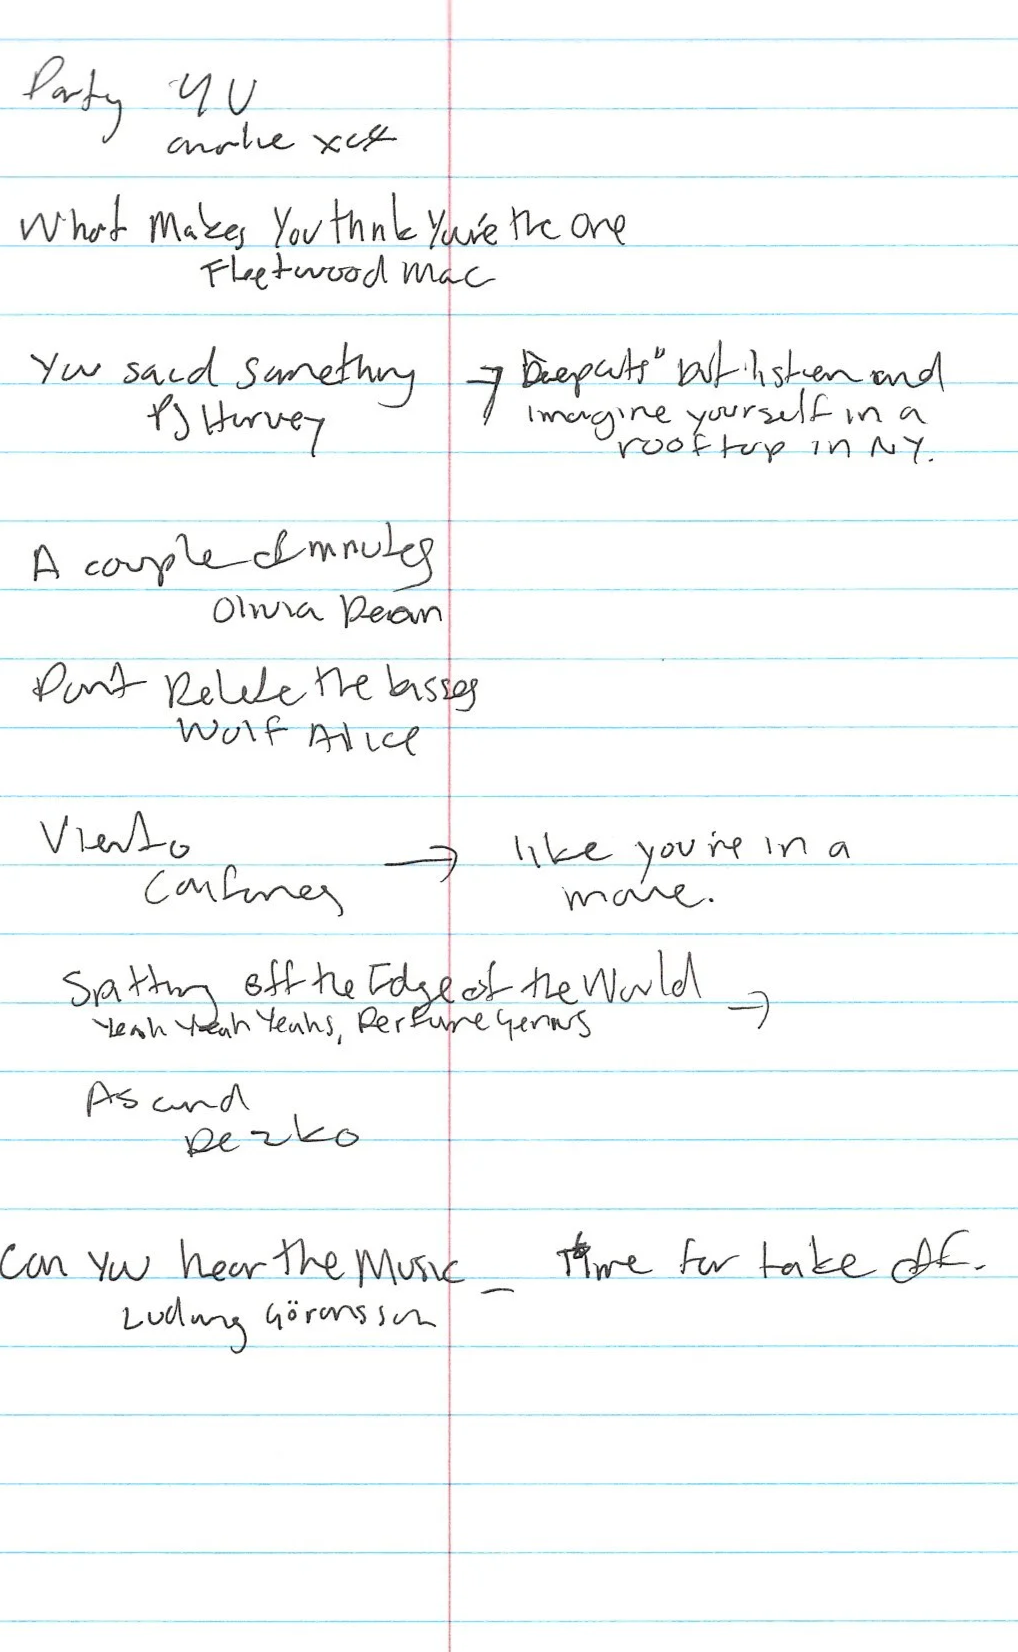 Party 4 U
charlie xcx
What Makes You think You're the One
Fleetwood Mac
You said something → Deepcuts" but listen and
PJ Harvey imagine yourself in a
rooftop in NY.
A couple of minutes
Olivia Dean
Don't Delete the kisses
Wolf Alice
Viento → like you're in a
Caifanes movie.
Spitting off the Edge of the World →
Yeah Yeah Yeahs, Perfume Genius
As and
Dezko
Can You hear the Music _ time for take off.
Ludwig Göransson